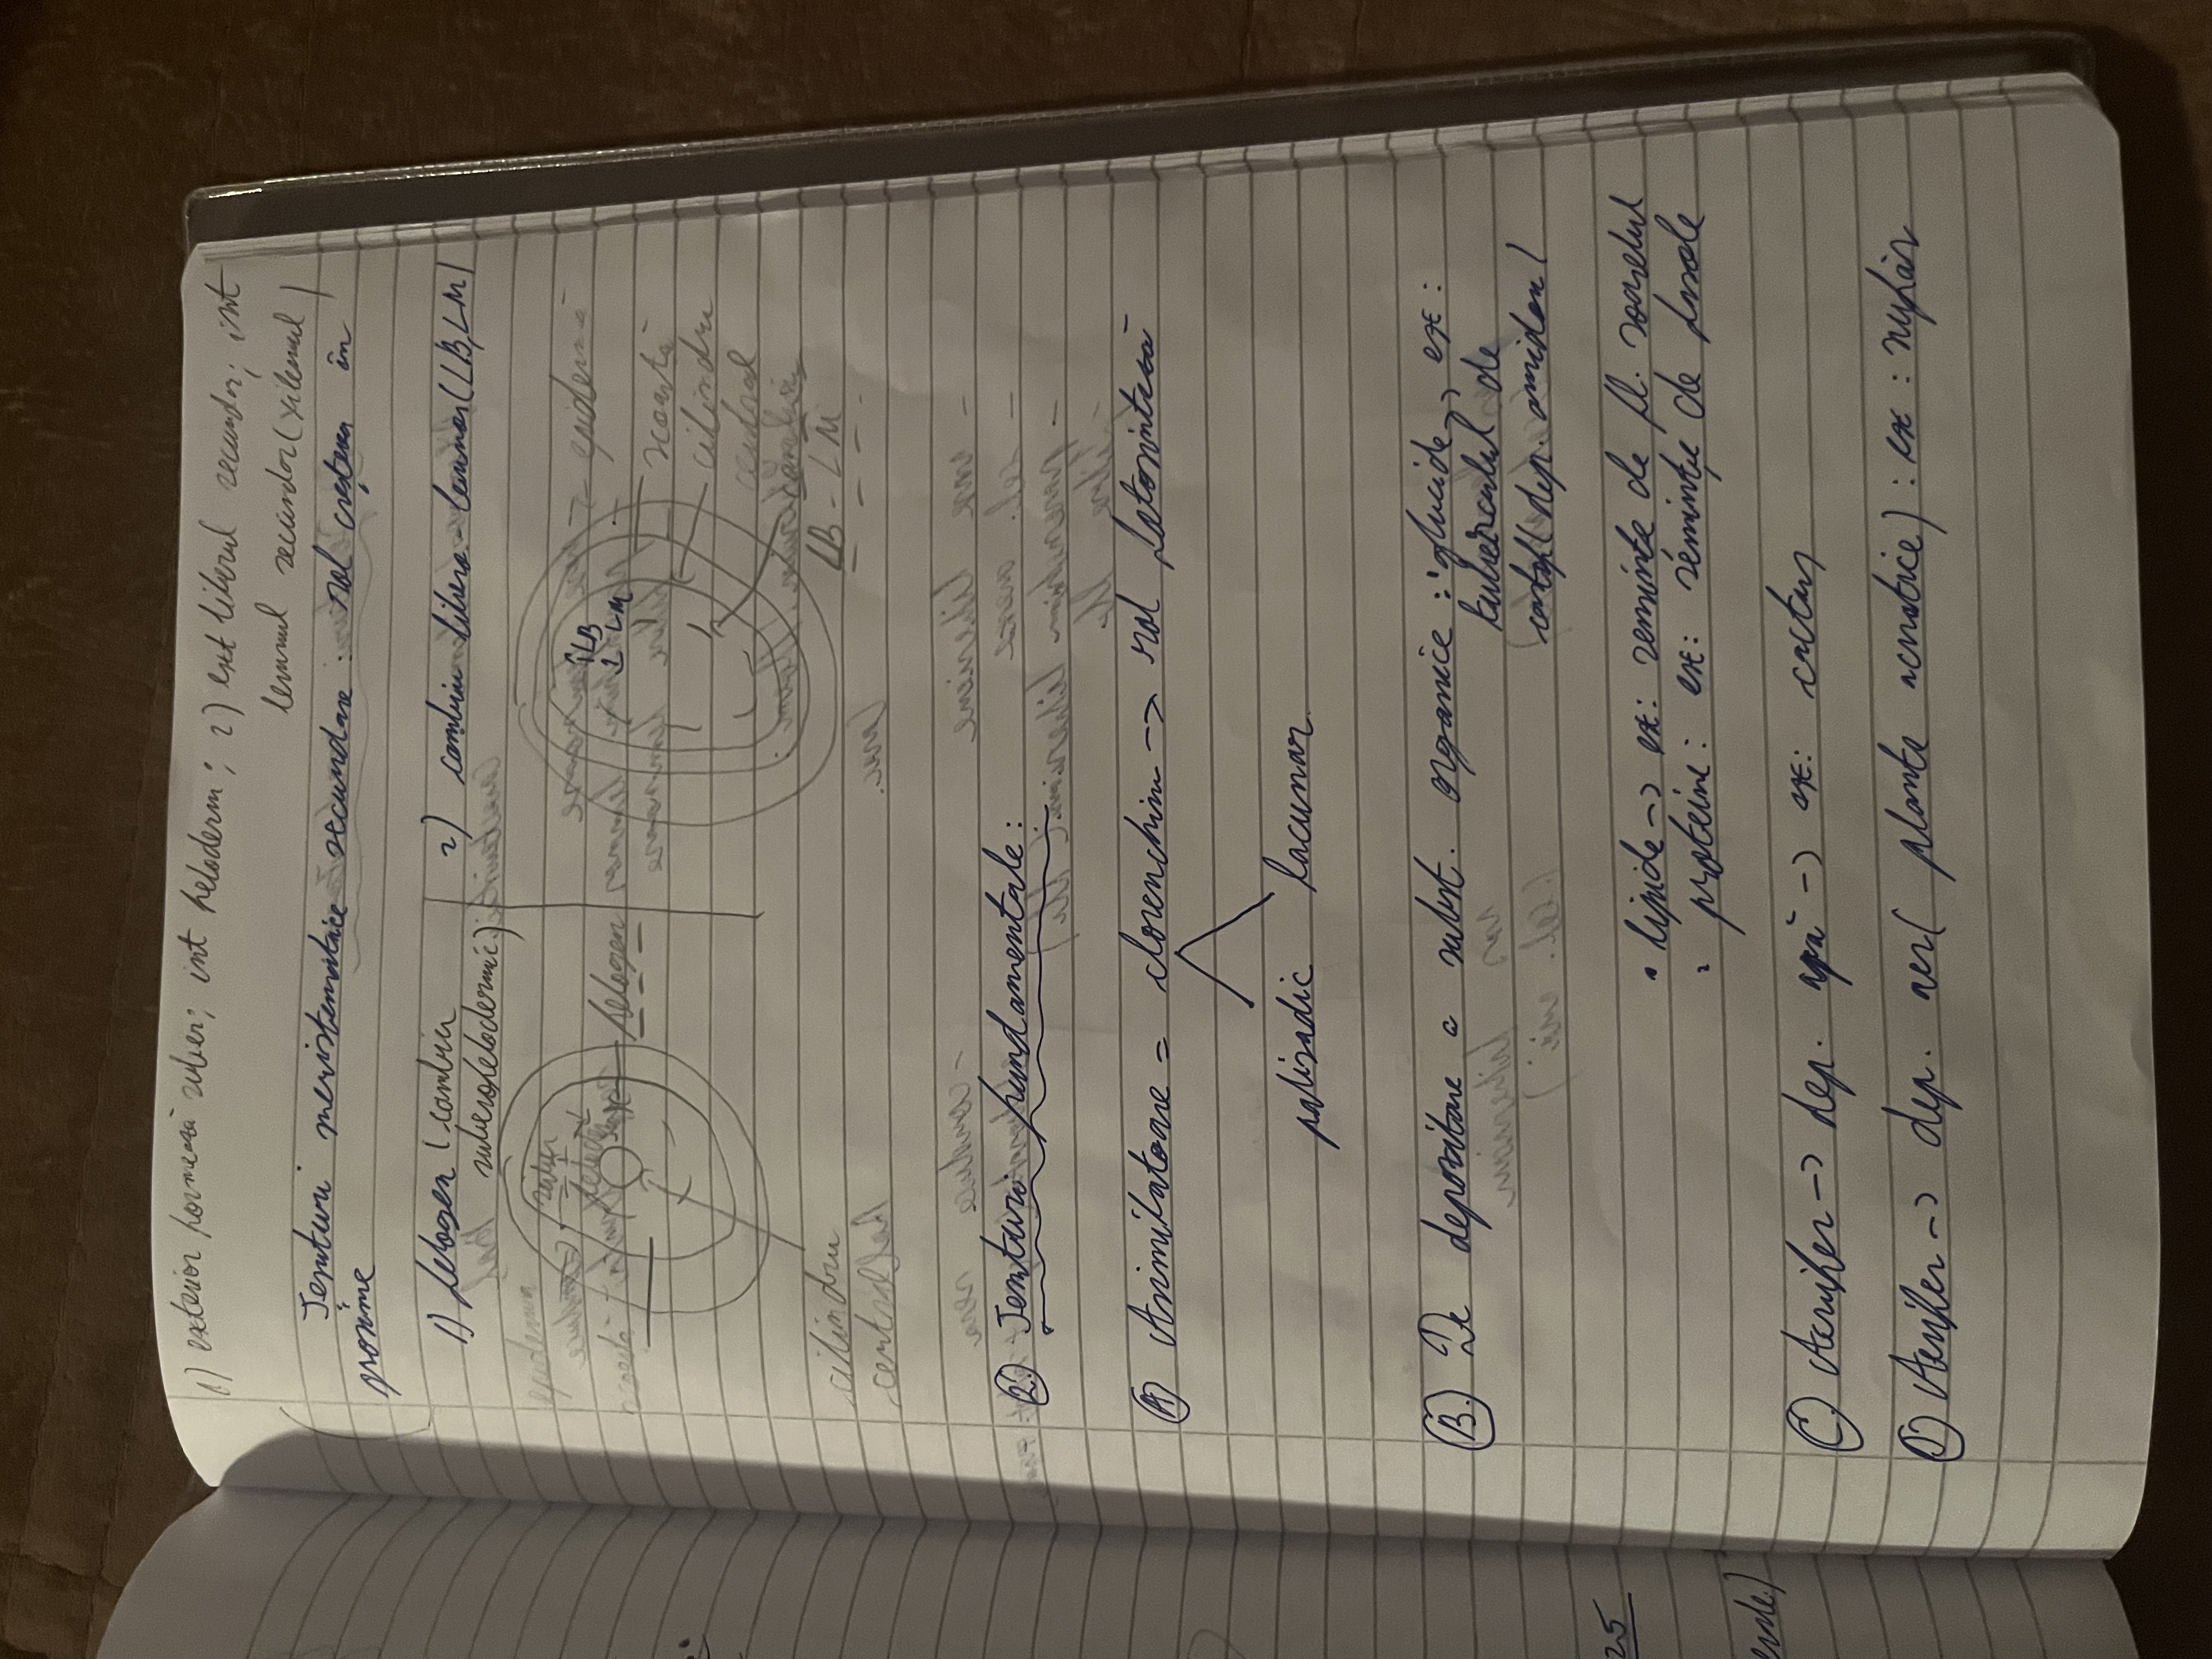 1) exterior formează suber; int feloderm; 2) ext liberul secundar; int
lemnul secundar (xilemul)
Țesuturi meristematice secundare: rol creștere în
grosime
1) felogen (cambiu
suberofelodermic)
2) cambiu libero-lemnos (LB, LM)
epidermă
scoarță
suber
feloderm
felogen
cilindru
central
↑LB
↓LM
epidermă
scoarță
cilindru
central
cambiu
LB - LM
2. Țesuturi fundamentale:
A) Asimilatoare = clorenchim -> rol fotosinteză
palisadic lacunar
B. De depozitare a subst. organice: · glucide -> ex:
tuberculul de
cartof (dep. amidon)
· lipide -> ex: semințe de fl. soarelui
· proteine: ex: semințe de fasole
C) Acvifer -> dep. apă -> ex: cactus
D) Aerifer -> dep. aer (plante acvatice): ex: nufăr
25